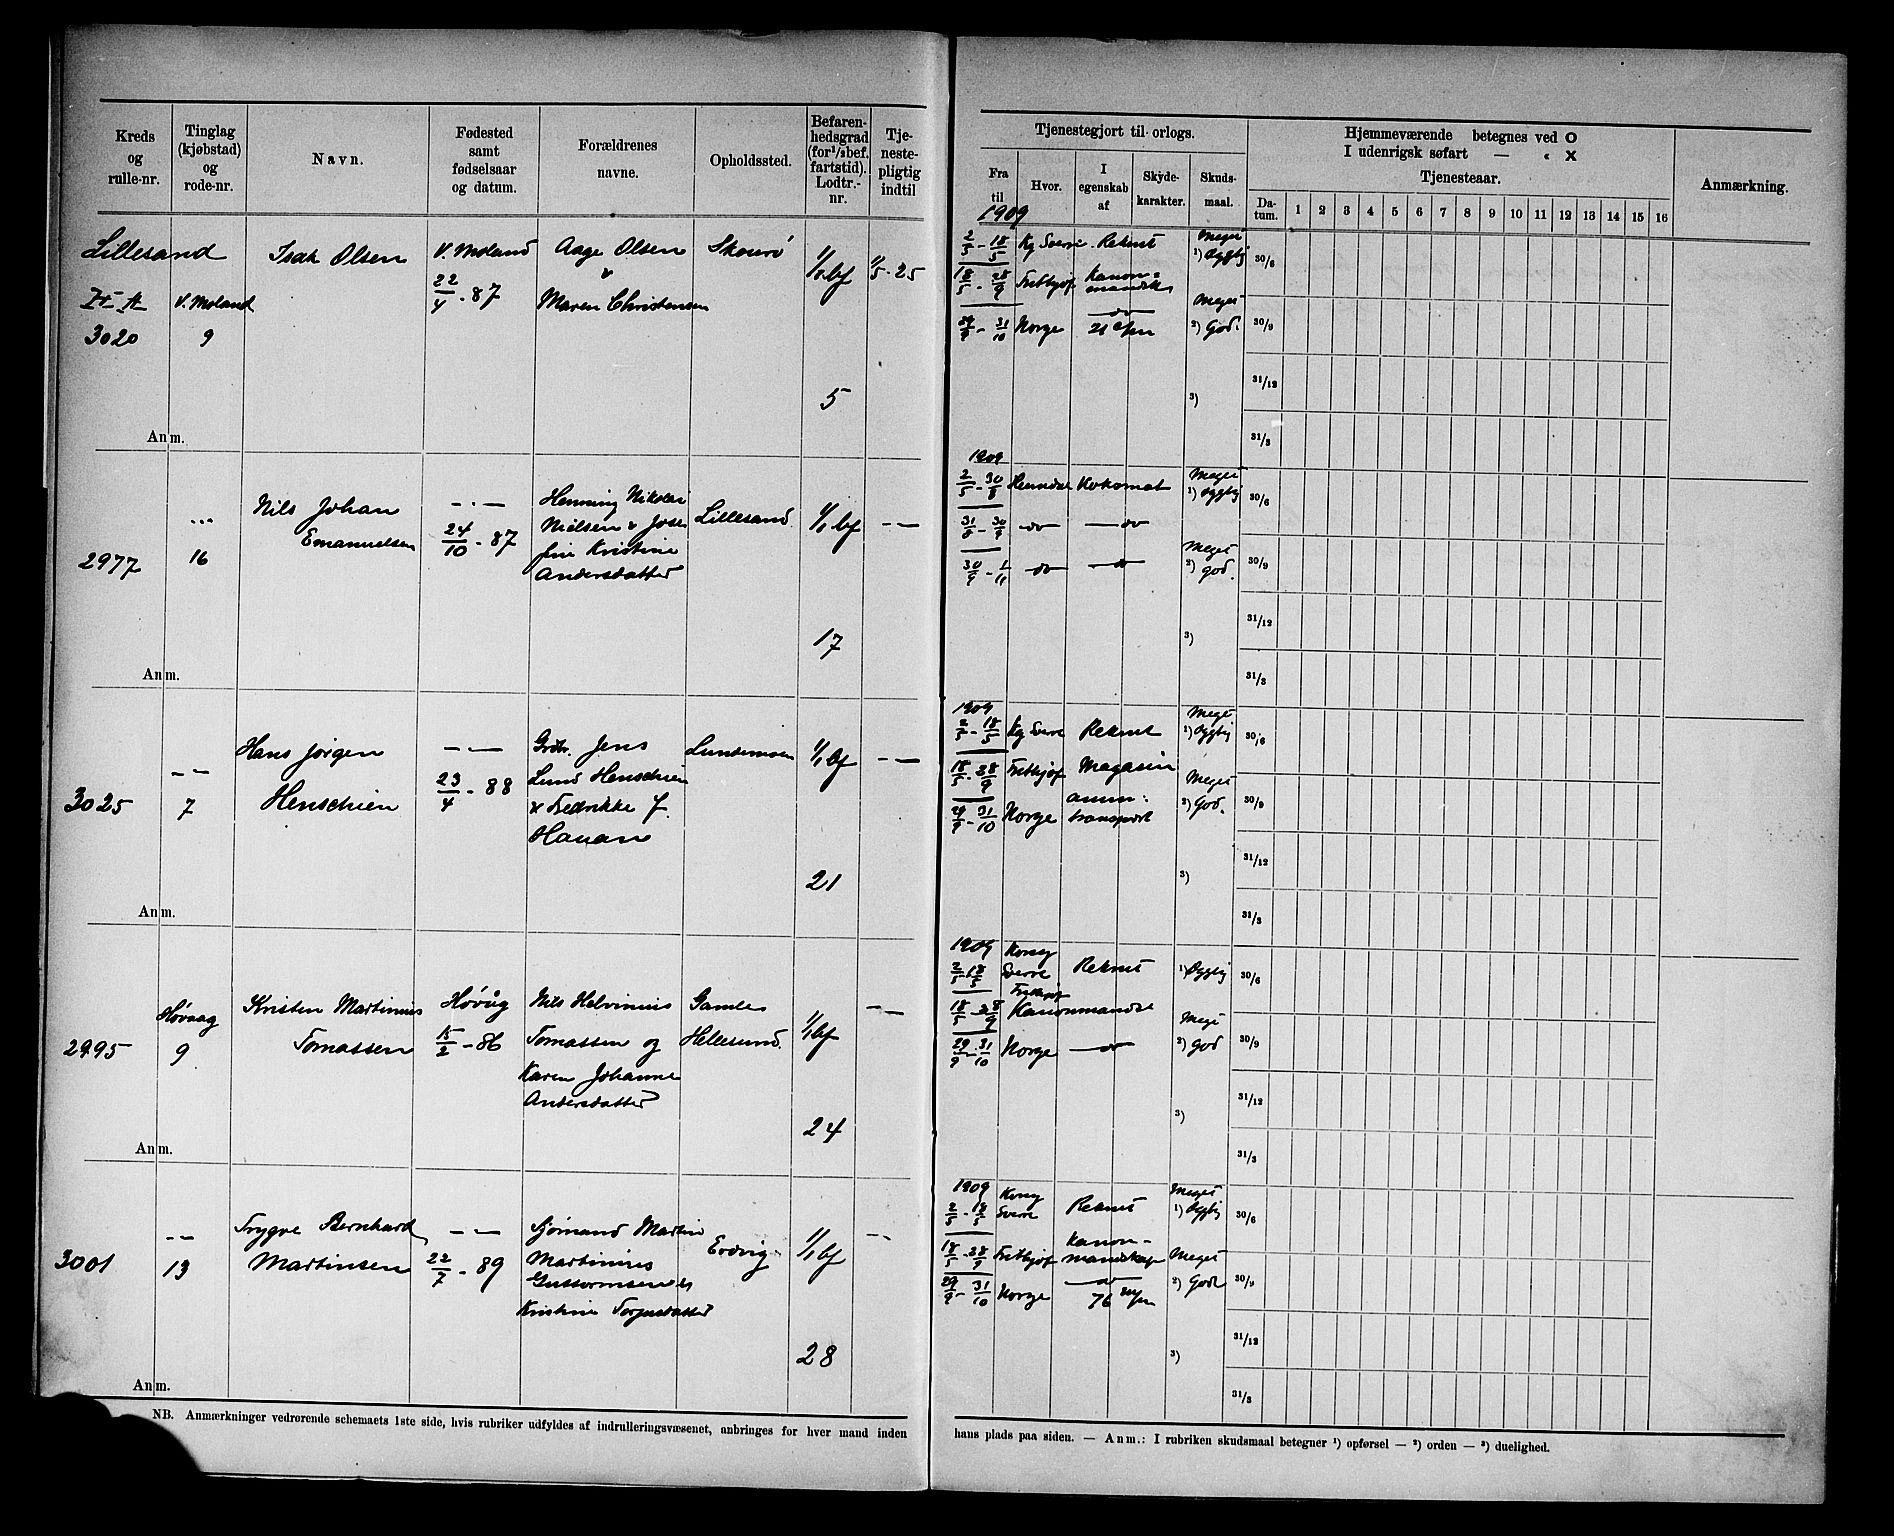 Kreds og rulle-nr.
Tinglag (kjøbstad) og rode-nr.
Navn.
Fødested samt fødselsaar og datum.
Forældrenes navne.
Opholdssted.
Befaren-hedsgrad (for 1/1 bef. fartstid). Lodtr.-nr.
Tje-neste-pligtig indtil
Tjenestegjort til orlogs.
Fra til
Hvor.
I egenskab af
Skyde-karakter.
Skuds-maal.
Hjemmeværende betegnes ved O
I udenrigsk søfart — " X
Tjenesteaar.
Da-tum.
1 2 3 4 5 6 7 8 9 10 11 12 13 14 15 16
Anmærkning.
Lillesand
3020
V. Moland
9
Isak Olsen
V. Moland
22/4 - 87
Aage Olsen
&
Maren Christensen
1/1 bf
5
1/5 - 25
1909
2/5 - 18/5 Kg Sverre Rekrut
Meget
1) Dygtig
18/5 - 28/9 Frithjof Kanon-
29/9 - 31/10 Norge
Meget
2) God.
3)
30/6
30/9
31/12
31/3
Anm.
2977
16
Nils Johan
Emanuelsen
— · —
24/10 - 87
Henning Nikolai
Nielsen & Jose-
fine Kristine
Andersdatter
Lillesand
1/1 bf
17
— —
1909
2/5 - 30/8 Koksmat
31/8 - 30/9 —do— —do—
30/9 - 1/11 —do— —do—
Meget
1) Dygtig
Meget
2) god.
3)
30/6
30/9
31/12
31/3
Anm.
3025
— —
7
Hans Jørgen
Henschien
— —
23/4 - 88
Grdbr. Jens
Lund Henschien
& Fedrikke J.
Hanan
Lundemoen
1/1 bf
21
— —
1909
2/5 - 18/5 Kg Sverre Rekrut
18/5 - 28/9 Frithjof Magasin
29/9 - 31/10 Norge amm:
transport
Meget
1) Dygtig
Meget
2) God.
3)
30/6
30/9
31/12
31/3
Anm.
2995
Høvaag
9
Kristen Martinius
Tomassen
Høvåg
15/2 - 86
Nils Helvinius
Tomassen og
Karen Johanne
Andersdatter
Gamle
Hellesund.
1/1 bf
24
— —
1909
2/5 - 18/5 Kong Sverre Rekrut
18/5 - 28/9 Frithjof Kanonmandsk
29/9 - 31/10 Norge —do—
1) Dygtig
Meget
2) god
3)
30/6
30/9
31/12
31/3
Anm.
3001
— —
13
Trygve Bernhard
Martinsen
— —
22/7 - 89
Sjømand Martin
Martinius
Kristine Torjusdatter
1/1 bf
28
— —
1909
2/5 - 18/5 Kong Sverre Rekrut
18/5 - 28/9 Frithjof Kanon-
mandskap
29/9 - 31/10 Norge —do—
76
Meget
1) Dygtig
Meget
2) Godt
3)
30/6
30/9
31/12
31/3
Anm.
NB. Anmærkninger vedrørende schemaets 1ste side, hvis rubriker udfyldes af indrulleringsvæsenet, anbringes for hver mand inden
hans plads paa siden. — Anm.: I rubriken skudsmaal betegner ¹) opførsel — ²) orden — ³) duelighed.